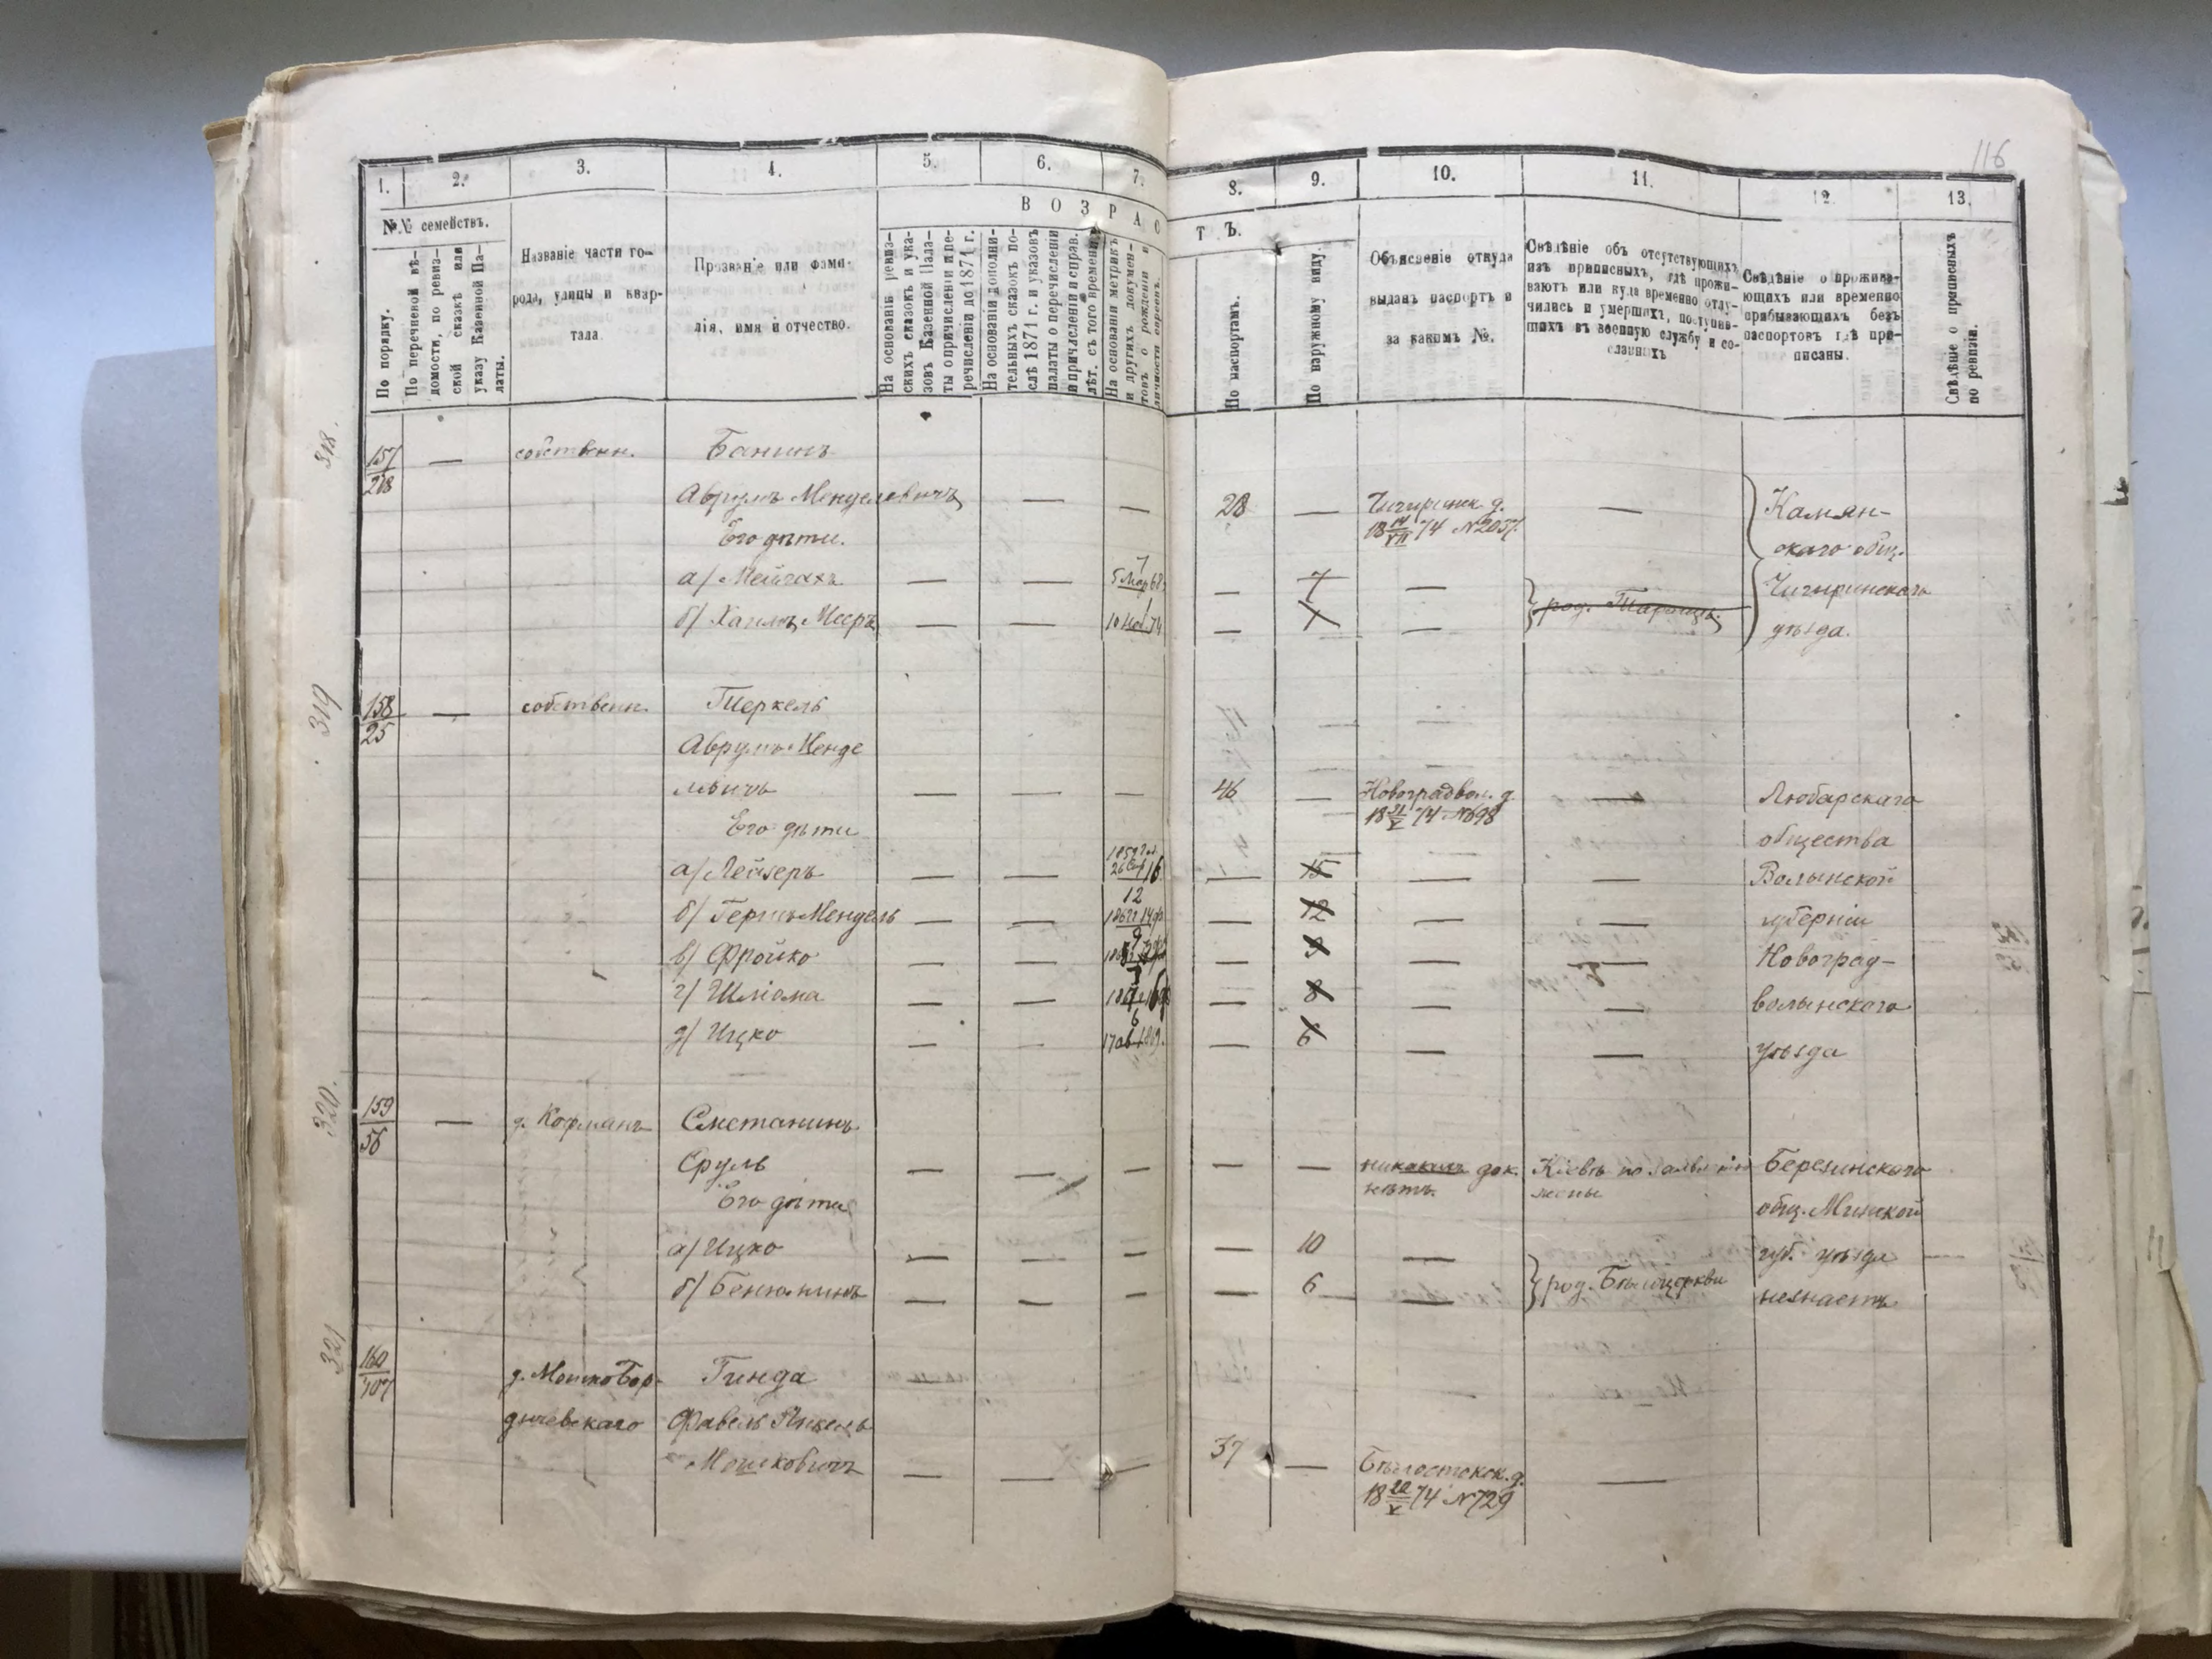 116
1.
2.
3.
4.
5.
6.
7.
8.
9.
10.
11.
12.
13.
№№ семействъ.
По порядку.
По перечневой вѣ-
домости, по ревиз-
ской сказкѣ или
указу Казенной Па-
латы.
Названіе части го-
рода, улицы и квар-
тала
Прозваніе или фами-
лія, имя и отчество.
ВОЗРАС
Т Ъ.
На основаніи ревиз-
скихъ сказокъ и ука-
зовъ Казенной Пала-
ты о причисленіи и пе-
речисленіи до 1871 г.
На основаніи дополни-
тельныхъ сказокъ по-
слѣ 1871 г. и указовъ
палаты о перечисленіи
и причисленіи и справ.
лѣт. съ того времени.
На основаніи метрикъ
и другихъ докумен-
товъ о рожденіи и
личности евреевъ.
По паспортамъ.
По наружному виду.
Объясненіе откуда
выданъ паспортъ и
за какимъ №.
Свѣдѣніе объ отсутствующихъ
изъ приписныхъ, гдѣ прожи-
ваютъ или куда временно отлу-
чились и умершихъ, поступив-
шихъ въ военную службу и со-
сланныхъ
Свѣдѣніе о прожива-
ющихъ или временно
прибывающихъ безъ
паспортовъ гдѣ при-
писаны.
Свѣдѣніе о приписныхъ
по ревизіи.
318.
157
218
—
собственн.
Банинъ
Аврумъ Менделевичъ
—
—
28
—
Чигиринск. д.
18 14/VII 74 №2037.
—
Камян-
скаго общ.
Чигиринскаго
уѣзда.
Его дѣти.
а/ Мейлахъ
—
—
7
5 Мар 68
—
7
—
б/ Хаимъ Мееръ
—
—
1
10 Ноя 74
—
1
—
род. Тараща.
319
158
25
—
собственн.
Теркель
Аврумъ Менде
левичъ
—
—
—
46
—
Новоградвол. д.
18 31/V 74 №698
—
Любарскаго
общества
Волынской
губерніи
Новоград-
волынскаго
уѣзда
Его дѣти
а/ Лейзеръ
—
—
16
—
15
—
—
б/ Гершъ Мендель
—
—
12
—
12
—
—
в/ Фройко
—
—
9
—
9
—
—
г/ Шліома
—
—
—
8
—
—
д/ Ицко
—
—
6
17 ав 1869.
—
6
—
—
320.
159
56
—
д. Кофманъ
Сметанинъ
Сруль
—
—
—
—
—
никакихъ док.
нѣтъ.
Кіевъ по заявленію
жены
Березинскаго
общ. Минской
губ. уѣзда
незнаетъ
Его дѣти
а/ Ицко
—
—
—
—
10
—
б/ Бенюминъ
—
—
—
—
6
—
род. Бѣлоцеркви
321
160
407
д. Мошко Бер-
дичевскаго
Гинда
Файвель Янкель
Мошковичъ
—
—
—
37
—
Бѣлостокск. д.
18 20/V 74 №729
—